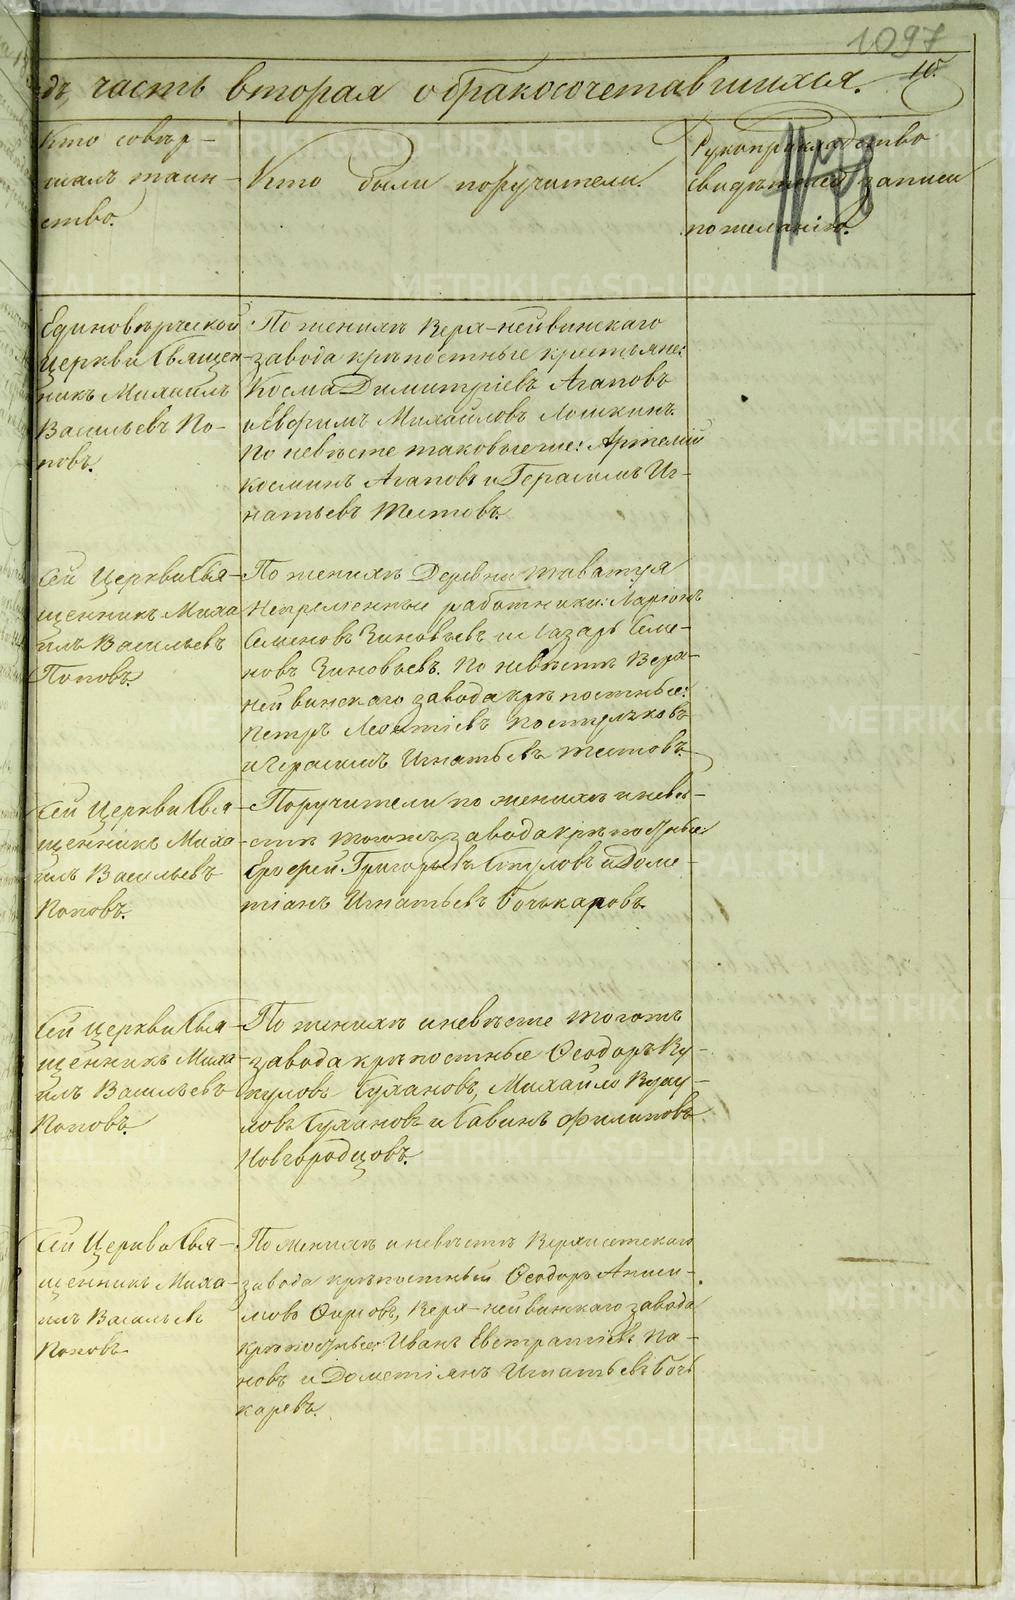 1097
10.
дъ, часть вторая о бракосочетавшихся.
Кто совер-
шалъ таин-
ство.
Кто были поручители.
Рукоприкладство
свидѣтелей записи
по желанію.
Единовѣрческой
церкви Священ-
никъ Михаилъ
Васильевъ По-
повъ.
По женихѣ Верх-нейвинскаго
завода крѣпостные крестьяне:
Косма Димитріевъ Агаповъ
и Евфимъ Михайловъ Лошкинъ.
По невѣсте таковыеже: Артемій
Косминъ Агаповъ и Герасимъ Иг-
натьевъ Шестовъ.
Сей Церкви Свя-
щенникъ Миха
илъ Васильевъ
Поповъ.
По женихѣ Деревни Таватуя
Непременные работники: Ларіонъ
Семеновъ Зиновьевъ и Лазарь Семе-
новъ Зиновьевъ. По невѣстѣ Верх-
нейвинскаго завода крѣпостные:
Петръ Леонтіевъ Пострѣковъ
и Герасимъ Игнатьевъ Шестовъ.
Сей Церкви Свя-
щенникъ Миха-
илъ Васильевъ
Поповъ.
Поручители по женихѣ и невѣ-
стѣ тогожъ завода крѣпостные
Ерофей Григорьевъ и Доме-
тіанъ Игнатьевъ Бочькаровъ.
Сей Церкви Свя-
щенникъ Миха-
илъ Васильевъ
Поповъ.
По женихѣ и невѣсте тогожъ
завода крѣпостные Ѳеодоръ Ку-
куловъ Сухановъ, Михайло
Сухановъ и Савинъ Филиповъ
Новгородцовъ.
Сей Церкви Свя-
щенникъ Миха-
илъ Васильевъ
Поповъ
По женихѣ и невѣстѣ Верхисетскаго
завода крѣпостный Ѳеодоръ Аниси-
мовъ Верх-нейвинскаго завода
крѣпостные Иванъ Евстратіевъ Па-
новъ и Дометіянъ Игнатьевъ Бочь
каревъ.
METRIKI.GASO-URAL.RU